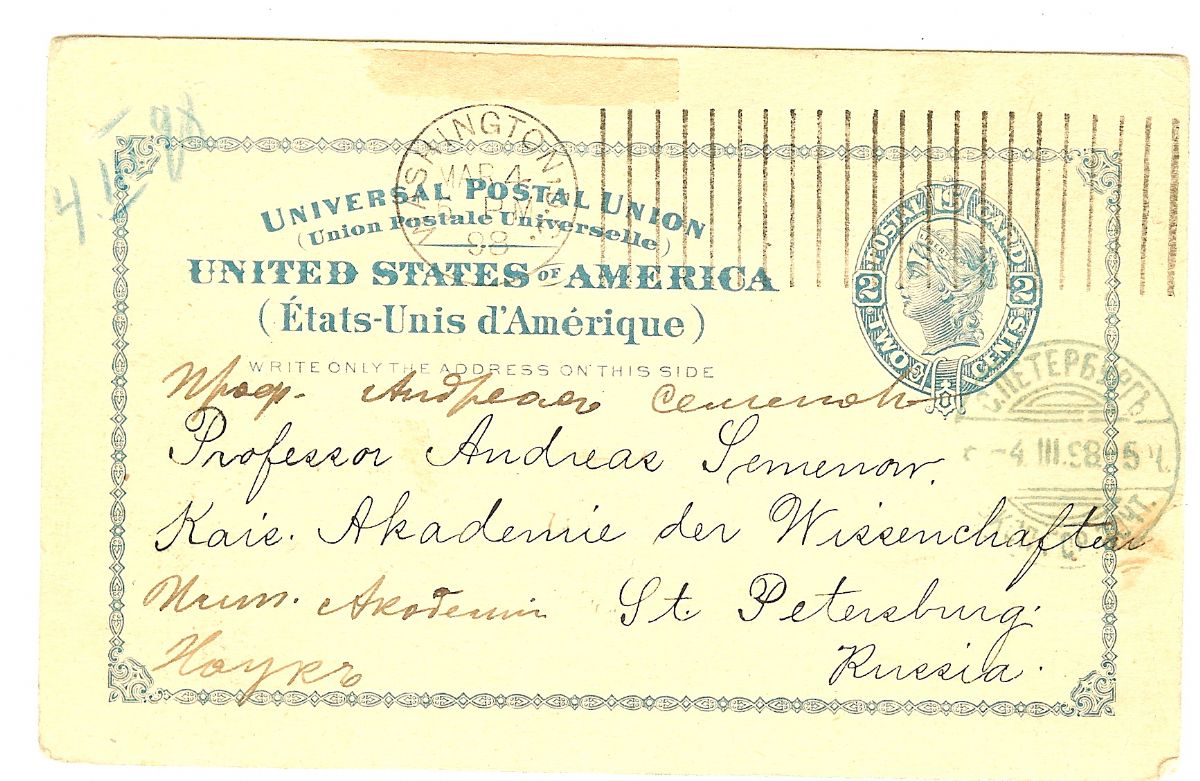 4.III 98
WASHINGTON, D.C.
MAR 4
98
UNIVERSAL POSTAL UNION
(Union Postale Universelle)
UNITED STATES OF AMERICA
(États-Unis d'Amérique)
WRITE ONLY THE ADDRESS ON THIS SIDE
POSTAL CARD
2 2
TWO CENTS
Проф. Андреасъ Семеновъ
Professor Andreas Semenow.
С.ПЕТЕРБУРГЪ
-4.III.98 5Ч.
ПОЧТ.
Kais. Akademie der Wissenchaften
Имп. Академии St. Petersburg.
Наукъ Russia.